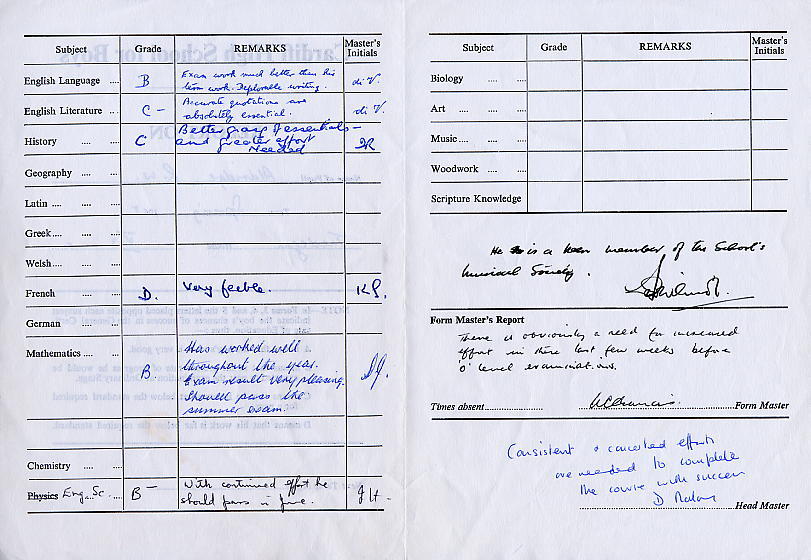 Subject Grade REMARKS Master's Initials
English Language .... B Exam work much better than his
term work. Deplorable writing. di V.
English Literature .... C - Accurate quotations are
absolutely essential. di V.
History .... .... C Better grasp of essentials -
and greater effort
needed
Geography .... ....
Latin .... ....
Greek .... ....
Welsh .... ....
French .... .... D. Very feeble.
German .... ....
Mathematics .... .... B Has worked well
throughout the year.
Exam result very pleasing.
Should pass the
summer exam.
Chemistry .... ....
Physics Eng. Sc. .... B - With continued effort he
should pass in June. JH -
Subject Grade REMARKS Master's Initials
Biology .... ....
Art .... .... ....
Music .... .... ....
Woodwork .... ....
Scripture Knowledge
He is a keen member of the School's
Musical Society.
Form Master's Report
There is obviously a need for increased
effort in these last few weeks before
'O' level examinations.
Times absent Form Master
Consistent & concerted efforts
are needed to complete
the course with success
D
Head Master